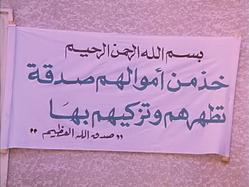 بسم الله الرحمن الرحيم
خذ من أموالهم صدقة
تطهرهم وتزكيهم بها
"صدق الله العظيم"